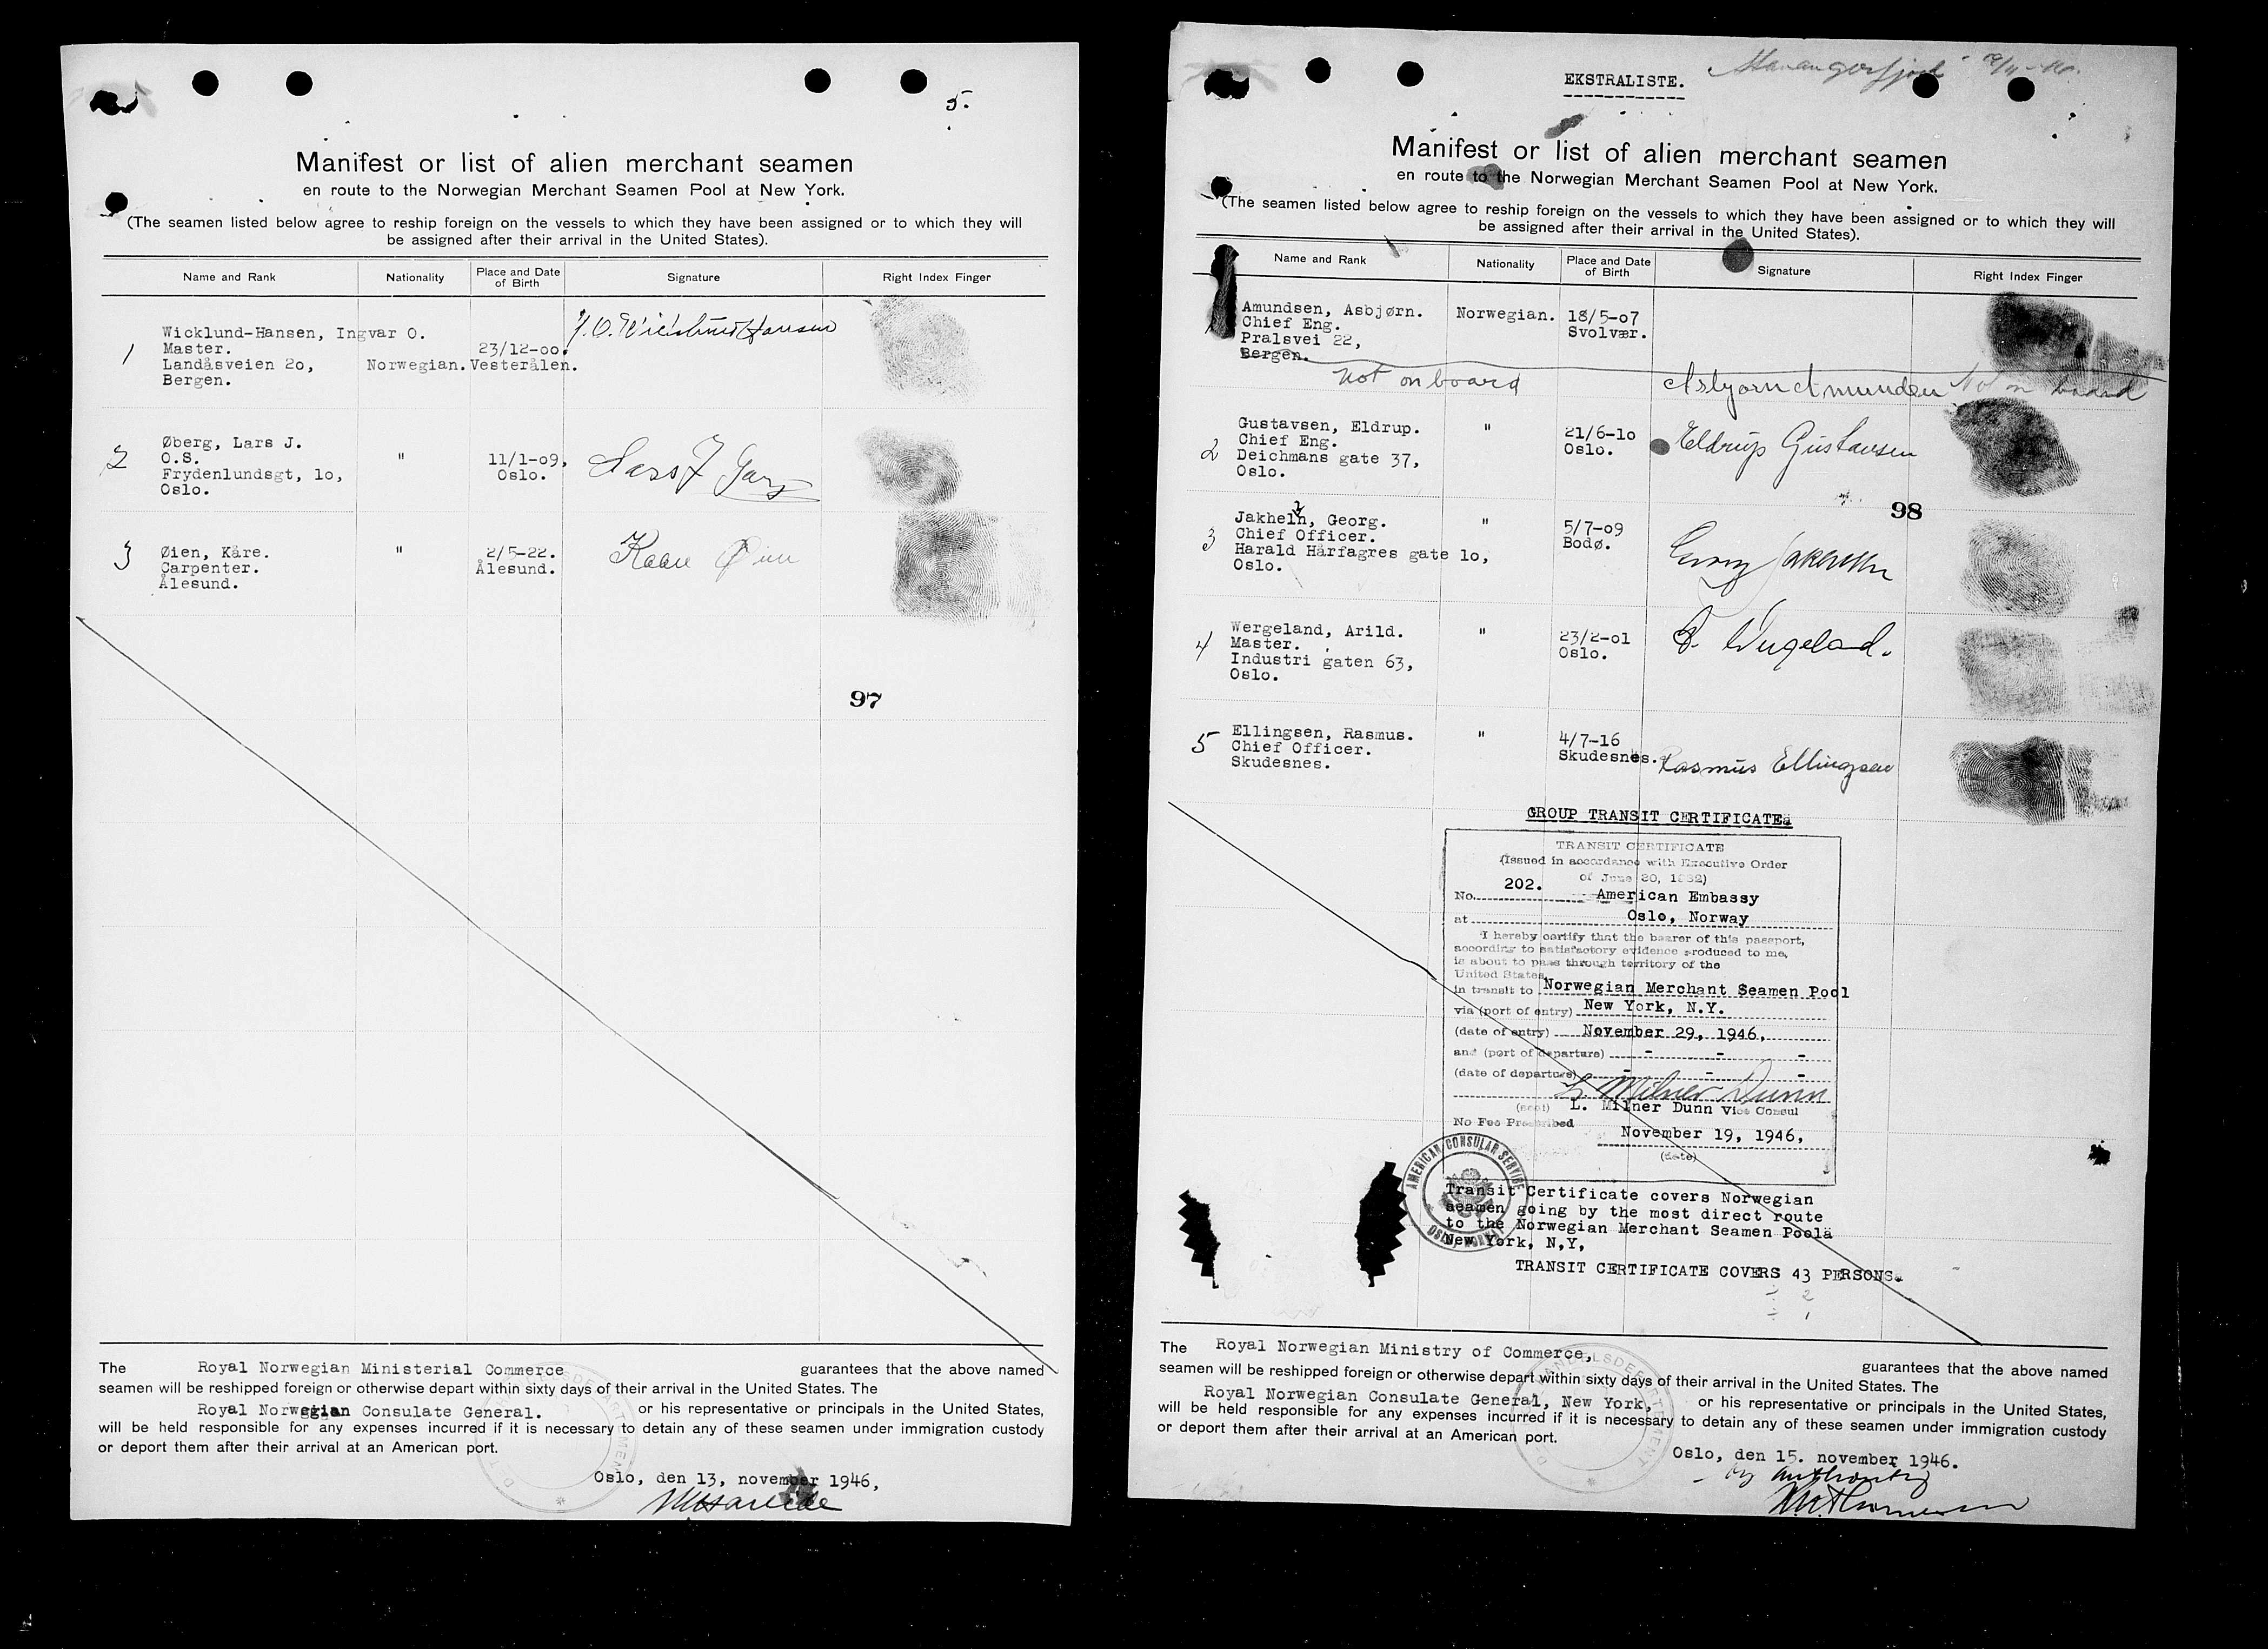 5.
Manifest or list of alien merchant seamen
en route to the Norwegian Merchant Seamen Pool at New York.
(The seamen listed below agree to reship foreign on the vessels to which they have been assigned or to which they will
be assigned after their arrival in the United States).
Name and Rank Nationality Place and Date of Birth Signature Right Index Finger
1 Wicklund-Hansen, Ingvar O.
Master. 23/12-00.
Landåsveien 2o, Norwegian. Vesterålen.
Bergen.
2 Øberg, Lars J.
O.S. " 11/1-09,
Frydenlundsgt, 1o, Oslo.
Oslo.
Lars J
3 Øien, Kåre. " 2/5-22.
Carpenter. Ålesund.
Ålesund.
Kaare Øien
97
The Royal Norwegian Ministerial Commerce guarantees that the above named
seamen will be reshipped foreign or otherwise depart within sixty days of their arrival in the United States. The
Royal Norwegian Consulate General. or his representative or principals in the United States,
will be held responsible for any expenses incurred if it is necessary to detain any of these seamen under immigration custody
or deport them after their arrival at an American port.
Oslo, den 13, november 1946,
EKSTRALISTE.
Manifest or list of alien merchant seamen
en route to the Norwegian Merchant Seamen Pool at New York.
(The seamen listed below agree to reship foreign on the vessels to which they have been assigned or to which they will
be assigned after their arrival in the United States).
Name and Rank Nationality Place and Date of Birth Signature Right Index Finger
Amundsen, Asbjørn. Norwegian. 18/5-07
Chief Eng. Svolvær.
Pralsvei 22,
Bergen.
Not on board Asbjørn Amundsen Not on board
2 Gustavsen, Eldrup. " 21/6-10
Chief Eng. Oslo.
Deichmans gate 37,
Oslo.
Eldrup Gustavsen
98
3 Jakheln, Georg. " 5/7-09
Chief Officer. Bodø.
Harald Hårfagres gate 1o,
Oslo.
4 Wergeland, Arild. " 23/2-01
Master. Oslo.
Industri gaten 63,
Oslo.
A. Wergeland.
5 Ellingsen, Rasmus. " 4/7-16
Chief Officer. Skudesnes.
Skudesnes.
Rasmus Ellingsen
GROUP TRANSIT CERTIFICATE
TRANSIT CERTIFICATE
(Issued in accordance with Executive Order
of June 30, 1932)
No. 202. American Embassy
at Oslo, Norway
I hereby certify that the bearer of this passport,
according to satisfactory evidence produced to me,
is about to pass through territory of the
United States,
in transit to Norwegian Merchant Seamen Pool
via (port of entry) New York, N.Y.
(date of entry) November 29, 1946,
and (port of departure) - - -
(date of departure) - - -
L. Milner Dunn
(seal) L. Milner Dunn Vice Consul
No Fee Prescribed
November 19, 1946,
(date)
AMERICAN CONSULAR SERVICE
OSLO, NORWAY
Transit Certificate covers Norwegian
seamen going by the most direct route
to the Norwegian Merchant Seamen Poolä
New York, N,Y,
TRANSIT CERTIFICATE COVERS 43 PERSONS.
÷ 2
÷ 1
The Royal Norwegian Ministry of Commerce, guarantees that the above named
seamen will be reshipped foreign or otherwise depart within sixty days of their arrival in the United States. The
Royal Norwegian Consulate General, New York, or his representative or principals in the United States,
will be held responsible for any expenses incurred if it is necessary to detain any of these seamen under immigration custody
or deport them after their arrival at an American port.
Oslo, den 15. november 1946.
by authority